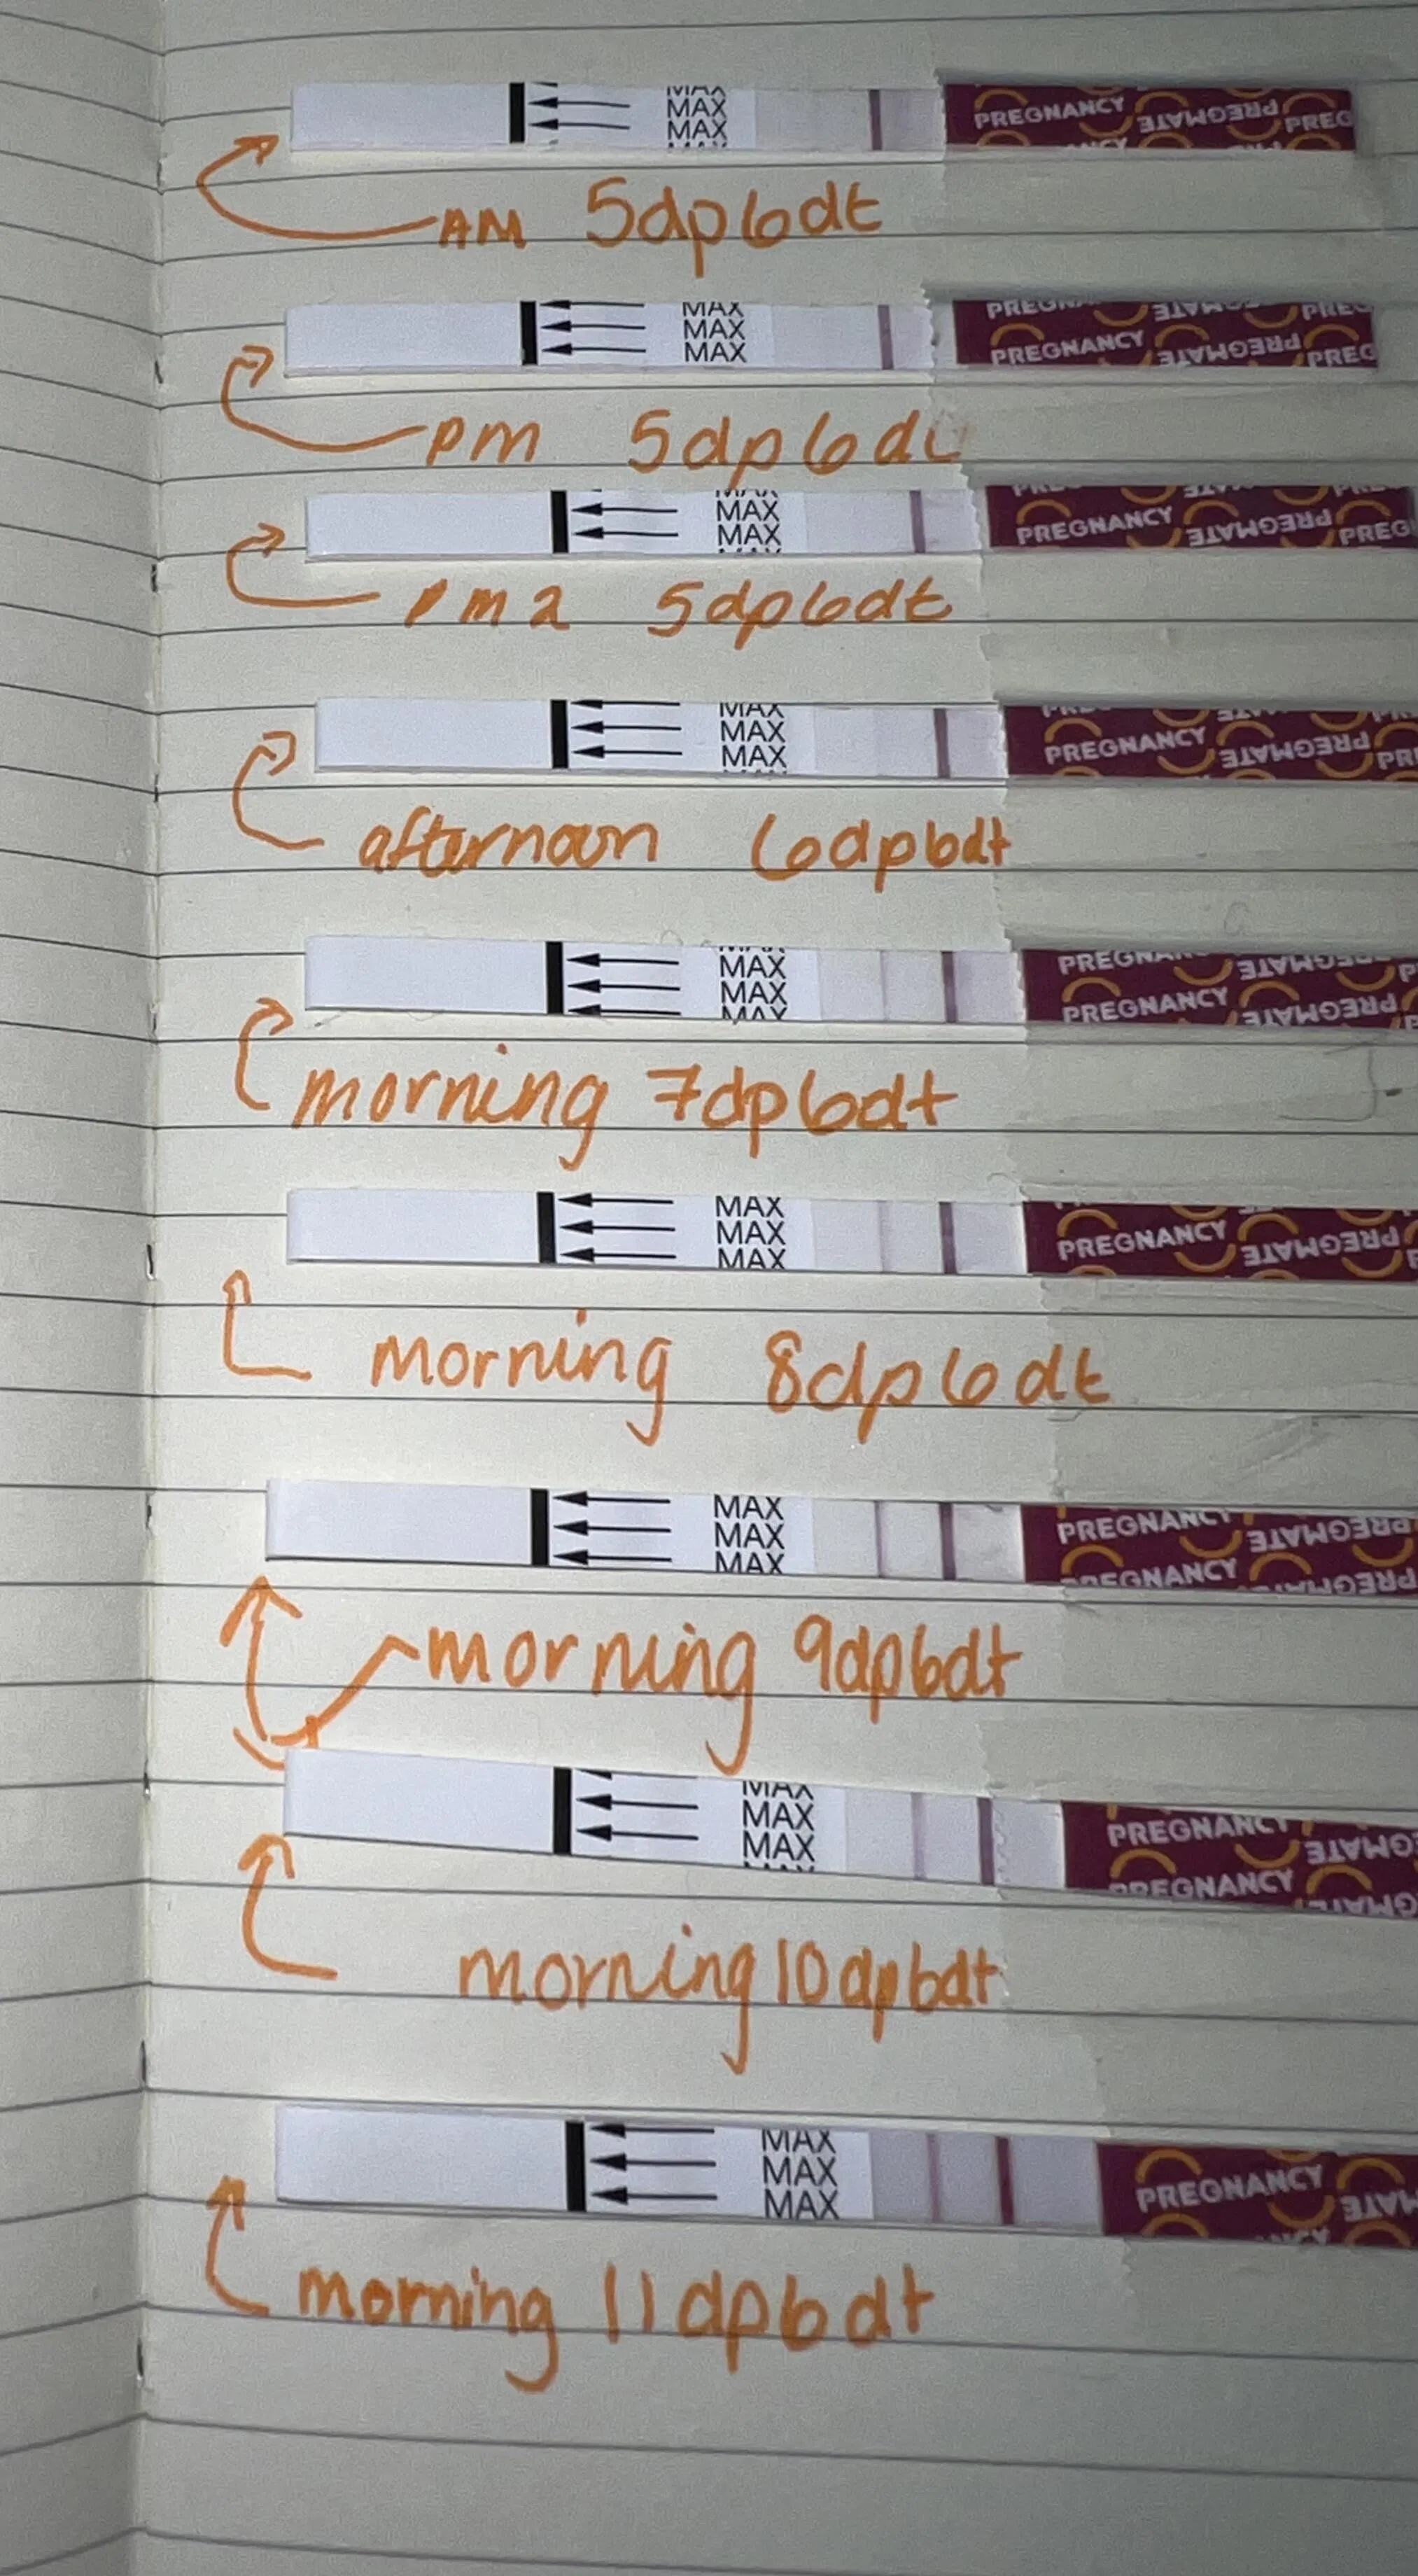 MAX
MAX
MAX
PREGNANCY PREGMATE PREG
AM 5dp6dt
MAX
MAX
MAX
PREGNANCY PREGMATE PREG
pm 5dp6dt
MAX
MAX
PREGNANCY PREGMATE PREG
pm 2 5dp6dt
MAX
MAX
MAX
PREGNANCY PREGMATE PR
afternoon 6dp6dt
MAX
MAX
MAX
PREGNANCY PREGMATE
morning 7dp6dt
MAX
MAX
MAX
PREGNANCY PREGMATE
morning 8dp6dt
MAX
MAX
MAX
PREGNANCY PREGMATE
PREGNANCY PREGMATE
morning 9dp6dt
MAX
MAX
MAX
PREGNANCY
PREGNANCY
morning 10dp6dt
MAX
MAX
MAX
PREGNANCY
morning 11dp6dt